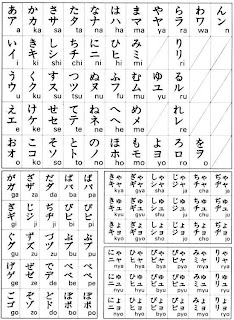 あア かカ さサ たタ なナ はハ まマ やヤ らラ わワ んン
a ka sa ta na ha ma ya ra wa n
いイ きキ しシ ちチ にニ ひヒ みミ りリ
i ki shi chi ni hi mi ri
うウ くク すス つツ ぬヌ ふフ むム ゆユ るル
u ku su tsu nu fu mu yu ru
えエ けケ せセ てテ ねネ へヘ めメ れレ
e ke se te ne he me re
おオ こコ そソ とト のノ ほホ もモ よヨ ろロ をヲ
o ko so to no ho mo yo ro o
がガ ざザ だダ ばバ ぱパ
ga za da ba pa
ぎギ じジ ぢヂ びビ ぴピ
gi ji ji bi pi
ぐグ ずズ づヅ ぶブ ぷプ
gu zu zu bu pu
げゲ ぜゼ でデ べベ ぺペ
ge ze de be pe
ごゴ ぞゾ どド ぼボ ぽポ
go zo do bo po
きゃキャ ぎゃギャ しゃシャ じゃジャ ちゃチャ ぢゃヂャ
kya gya sha ja cha ja
きゅキュ ぎゅギュ しゅシュ じゅジュ ちゅチュ ぢゅヂュ
kyu gyu shu ju chu ju
きょキョ ぎょギョ しょショ じょジョ ちょチョ ぢょヂョ
kyo gyo sho jo cho jo
にゃニャ ひゃヒャ びゃビャ ぴゃピャ みゃミャ りゃリャ
nya hya bya pya mya rya
にゅニュ ひゅヒュ びゅビュ ぴゅピュ みゅミュ りゅリュ
nyu hyu byu pyu myu ryu
にょニョ ひょヒョ びょビョ ぴょピョ みょミョ りょリョ
nyo hyo byo pyo myo ryo